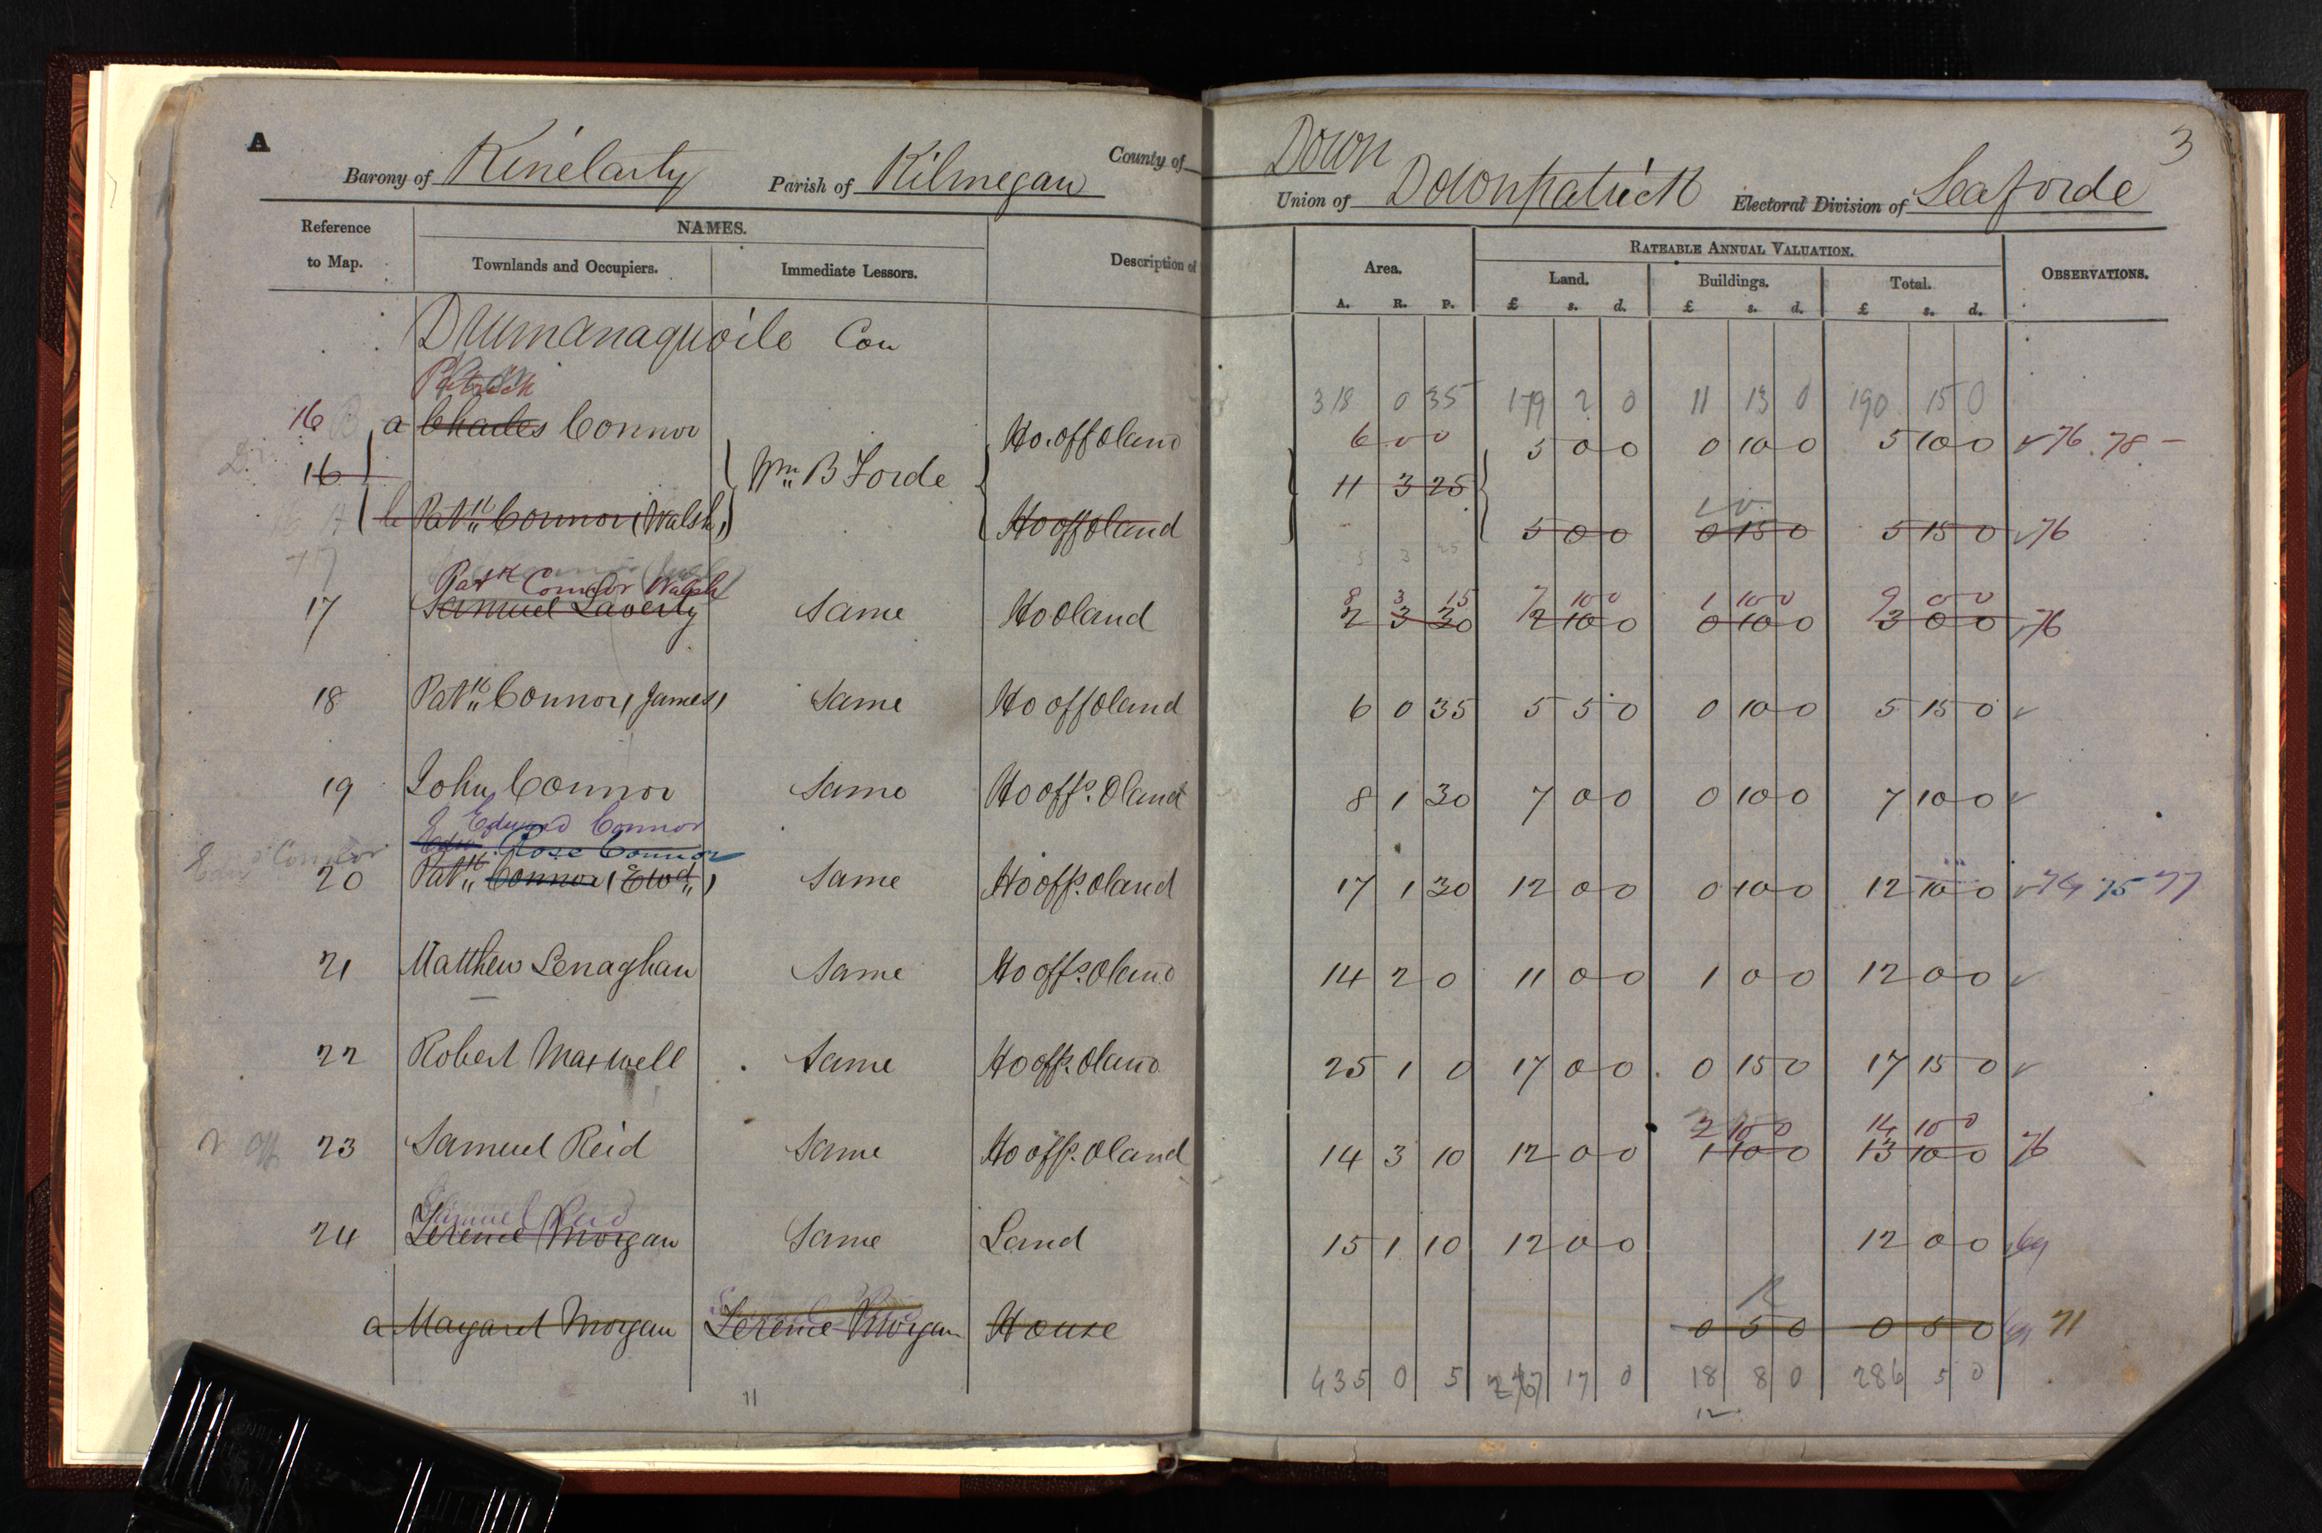 A
3
Barony of Kinelarty Parish of Kilmegan County of Down
Union of Downpatrick Electoral Division of Seaforde
Reference to Map. NAMES. Description of Area. RATEABLE ANNUAL VALUATION. OBSERVATIONS.
Townlands and Occupiers. Immediate Lessors. Land. Buildings. Total.
A. R. P. £ s. d. £ s. d. £ s. d.
Drumanaquoile Con
318 0 35 179 2 0 11 13 0 190 15 0
Patrick
16 B a Charles Connor Ho. off & land 6 0 0 5 0 0 0 10 0 5 10 0 ✓ 76. 78 –
16 Wm B Forde 11 3 25
b Patk Connor (Walsh) Ho off & land 5 0 0 0 15 0 5 15 0 ✓ 76
17
5 3 25
Patk Connor Walsh 8 3 15 7 10 0 1 10 0 9 0 0
17 Samuel Laverty Same Ho & land 2 3 30 2 10 0 0 10 0 3 0 0 ✓ 76
18 Patk Connor (James) Same Ho off & land 6 0 35 5 5 0 0 10 0 5 15 0 ✓
19 John Connor Same Ho offs. & land 8 1 30 7 0 0 0 10 0 7 10 0 ✓
Edward Connor
Edw. Rose Connor
20 Patk Connor (Edwd) Same Ho offs. & land 17 1 30 12 0 0 0 10 0 12 10 0 ✓ 74 75 77
21 Matthew Lenaghan Same Ho offs. & land 14 2 0 11 0 0 1 0 0 12 0 0 ✓
22 Robert Maxwell Same Ho offs. & land 25 1 0 17 0 0 0 15 0 17 15 0 ✓
2 10 0 14 10 0
23 Samuel Reid Same Ho offs. & land 14 3 10 12 0 0 1 10 0 13 10 0 76
Samuel Reid
24 Terence Morgan Same Land 15 1 10 12 0 0 12 0 0 69
a Margaret Morgan Terence Morgan House 0 5 0 0 5 0 69 71
435 0 5 267 17 0 18 8 0 286 5 0
12